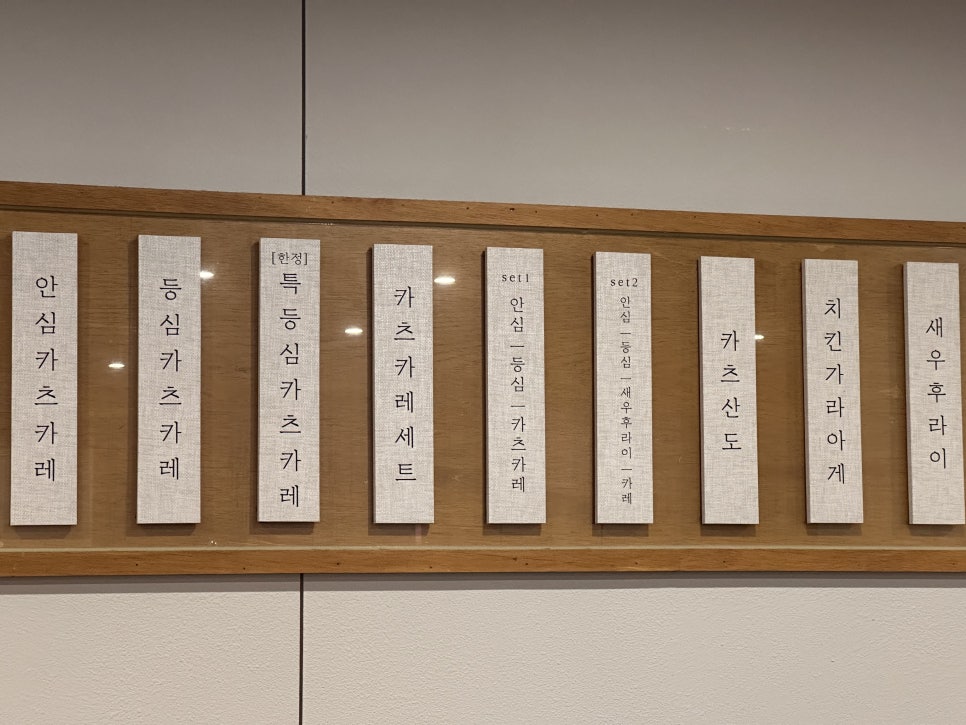 안심카츠카레
등심카츠카레
[한정]
특등심카츠카레
카츠카레세트
set1
안심|등심|카츠카레
set2
안심|등심|새우후라이|카레
카츠산도
치킨가라아게
새우후라이